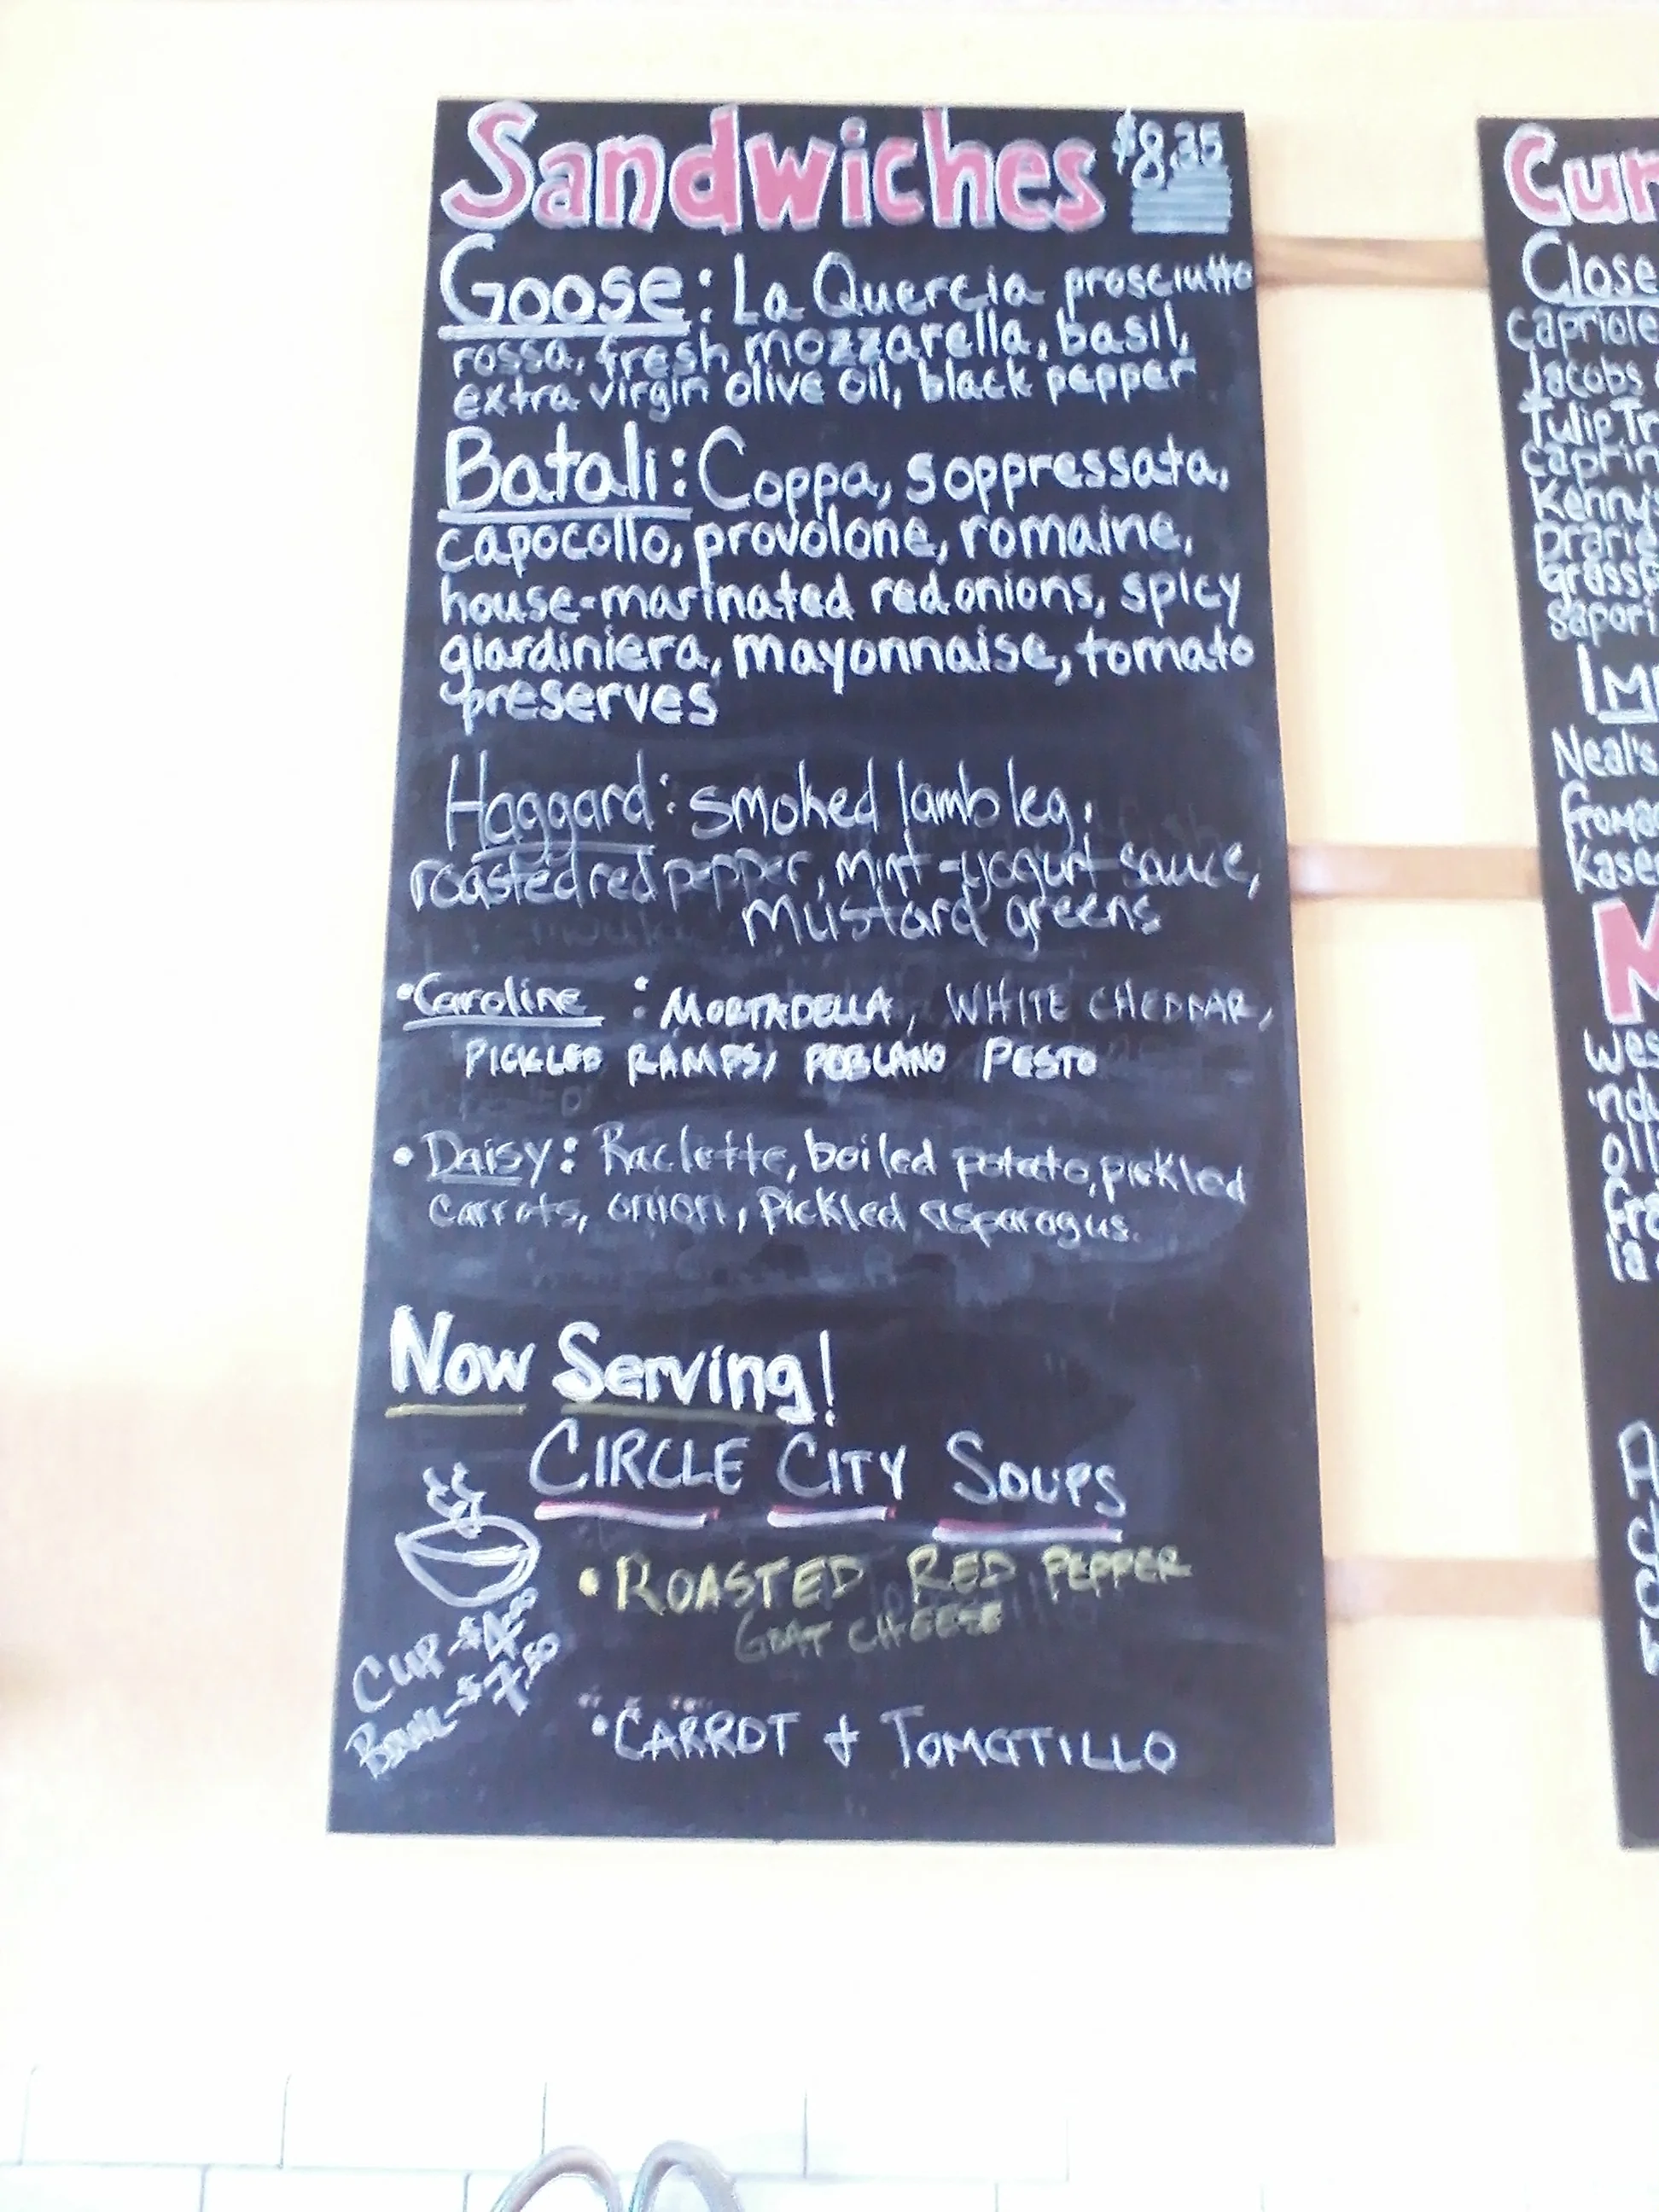 Sandwiches $8.35
Goose: La Quercia prosciutto
rossa, fresh mozzarella, basil,
extra virgin olive oil, black pepper
Batali: Coppa, soppressata,
capocollo, provolone, romaine,
house-marinated red onions, spicy
giardiniera, mayonnaise, tomato
preserves
Haggard: smoked lamb leg,
roasted red pepper, mint-yogurt sauce,
mustard greens
• Caroline : MORTADELLA, WHITE CHEDDAR,
PICKLED RAMPS, POBLANO PESTO
• Daisy: Raclette, boiled potato, pickled
carrots, onion, pickled asparagus.
Now Serving!
CIRCLE CITY SOUPS
• ROASTED RED PEPPER
GOAT CHEESE
CUP-$4.50
BOWL-$7.50
• CARROT + TOMATILLO
Cur
Close
capriole
Jacobs
TulipTr
caprin
Kenny's
prarie
grassf
sapori
Im
Neal's
froma
Kase
M
wes
indu
oli
fra